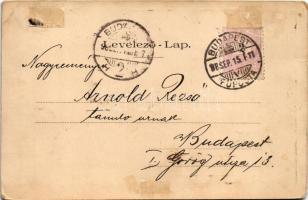 Levelező-Lap.
BUDAPEST
98 SEP. 15.
BUDA
Nagyreményű
Arnold Rezső
tanuló urnak
Budapest
I. Görög utca 13.